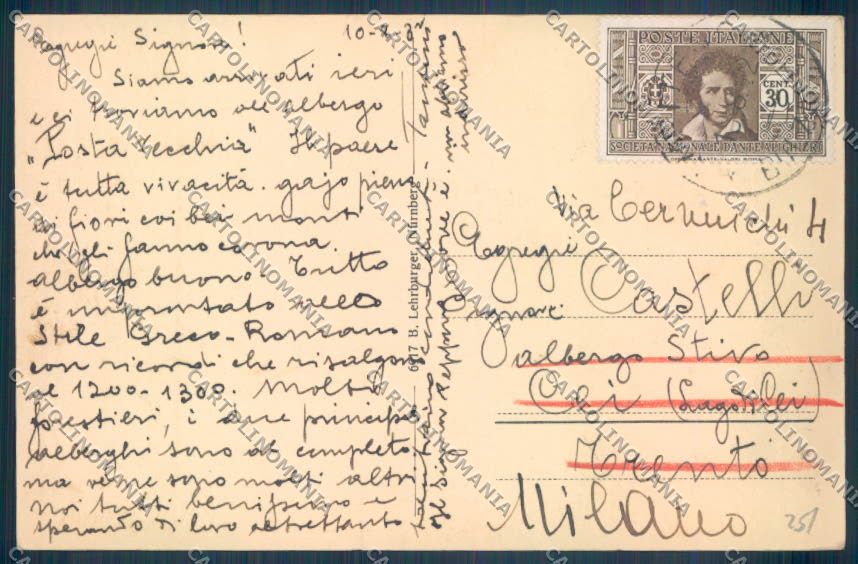 Egregi Signori! 10-8-32
Siamo arrivati ieri
e ci troviamo all albergo
"Posta Vecchia" Il paese
è tutta vivacità. gajo pieno
di fiori coi bei monti
che gli fanno corona.
albergo buono Tutto
è improntato nello
Stile Greco-Romano
con ricordi che risalgono
al 1200-1300. Molti
forestieri, i due principali
alberghi sono al completo
ma ve ne sono molti altri
noi tutti benissimo e
sperando di loro altrettanto
6917 B. Lehrburger, Nürnberg
POSTE ITALIANE
CENT.
30
SOCIETÀ NAZIONALE DANTE ALIGHIERI
Via Cernuschi 4
Egregi
Signori
Castelli
albergo Stivo
(Lago
Trento
Milano
251
CARTOLINOMANIA